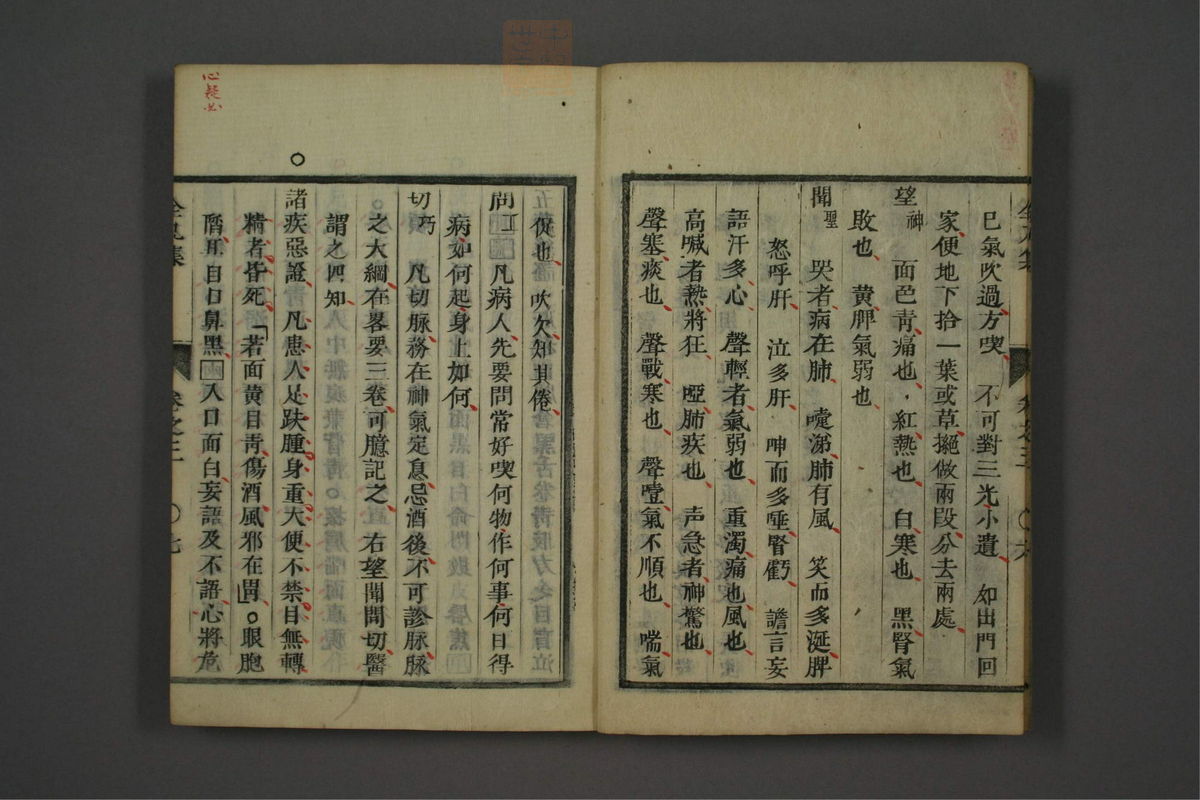 巳氣吹過方喫　不可對三光小遺　如出門回
家便地下拾一葉或草撧做兩段分去兩處
望神　面色靑痛也紅熱也　白寒也　黑腎氣
敗也　黃脾氣弱也
聞聖　哭者病在肺　嚏㴑肺有風　笑而多涎脾
怒呼肝　泣多肝　呻而多唾腎虧　譫言妄
語汗多心　聲輕者氣弱也　重濁痛也風也
高喊者熱將狂　啞肺疾也　声急者神驚也
聲塞痰也　聲戰寒也　聲噎氣不順也　喘氣
促也　吹欠知其倦
問工　凡病人先要問常好喫何物作何事何日得
病如何起身上如何
切巧　凡切脉務在神氣定息忌酒後不可診脉脉
之大綱在畧要三卷可臆記之　右望聞問切醫
謂之四知
諸疾惡證　凡患人足趺腫身重大便不禁目無轉
精者昏死　若面黃目靑傷酒風邪在胃。眼胞
陷耳目口鼻黑　入口面白妄語及不語心將危
卷之三
六
卷之三
七